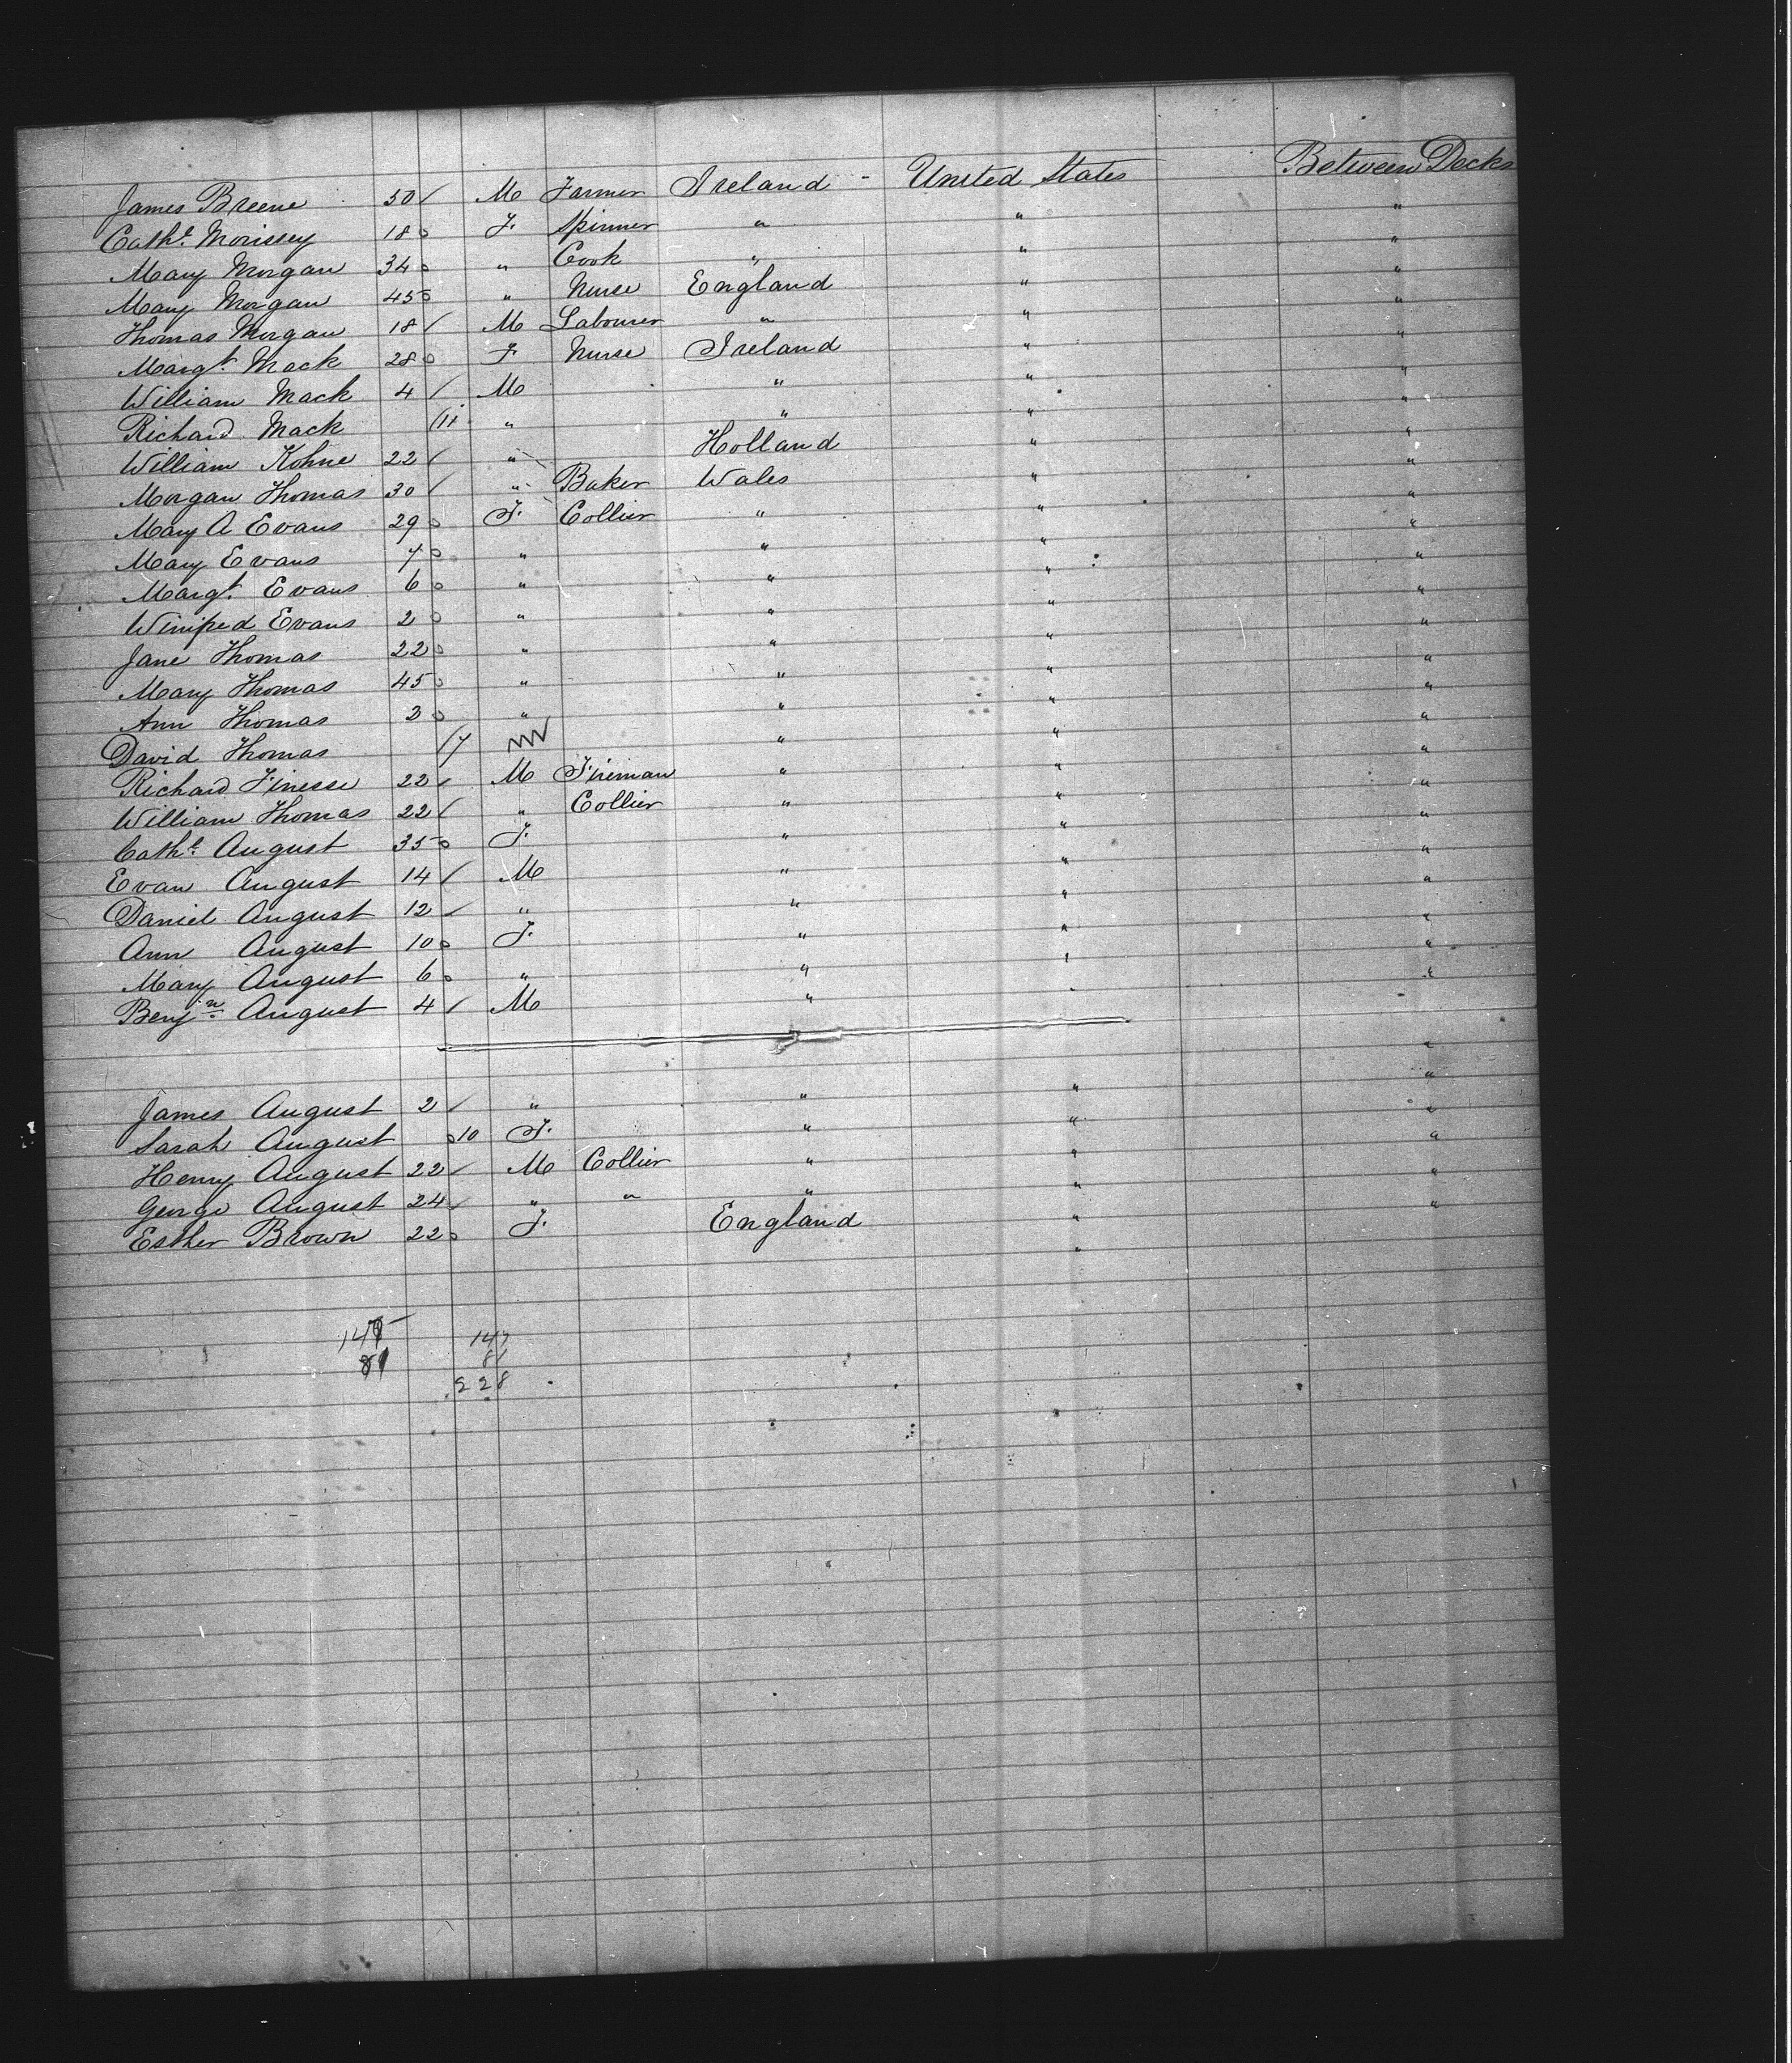 James Breene 50 / M Farmer Ireland - United States Between Decks
Cathe. Morissey 18 o F. Spinner " " "
Mary Morgan 34 o " Cook " " "
Mary Morgan 45 o " Nurse England " "
Thomas Morgan 18 / M Labourer " " "
Margt. Mack 28 o F. Nurse Ireland " "
William Mack 4 / M " " "
Richard Mack /11 " " " "
William Kohne 22 / " Holland " "
Morgan Thomas 30 / " Baker Wales " "
Mary A Evans 29 o F. Collier " " "
Mary Evans 7 o " " " "
Margt. Evans 6 o " " " "
Winifred Evans 2 o " " " "
Jane Thomas 22 o " " " "
Mary Thomas 45 o " " " "
Ann Thomas 3 o " " " "
David Thomas /7 " " "
Richard Finesse 22 / M Fireman " " "
William Thomas 22 / " Collier " " "
Cathe. August 35 o F. " " "
Evan August 14 / M " " "
Daniel August 12 / " " " "
Ann August 10 o F. " " "
Mary August 6 o " " " "
Benjn. August 4 / M " " "
James August 2 / " " " "
Sarah August o 10 F. " " "
Henry August 22 / M Collier " " "
George August 24 / " " " " "
Esther Brown 22 o F. England " "
147 147
81 81
228